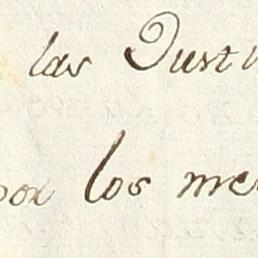 las Just
por los me